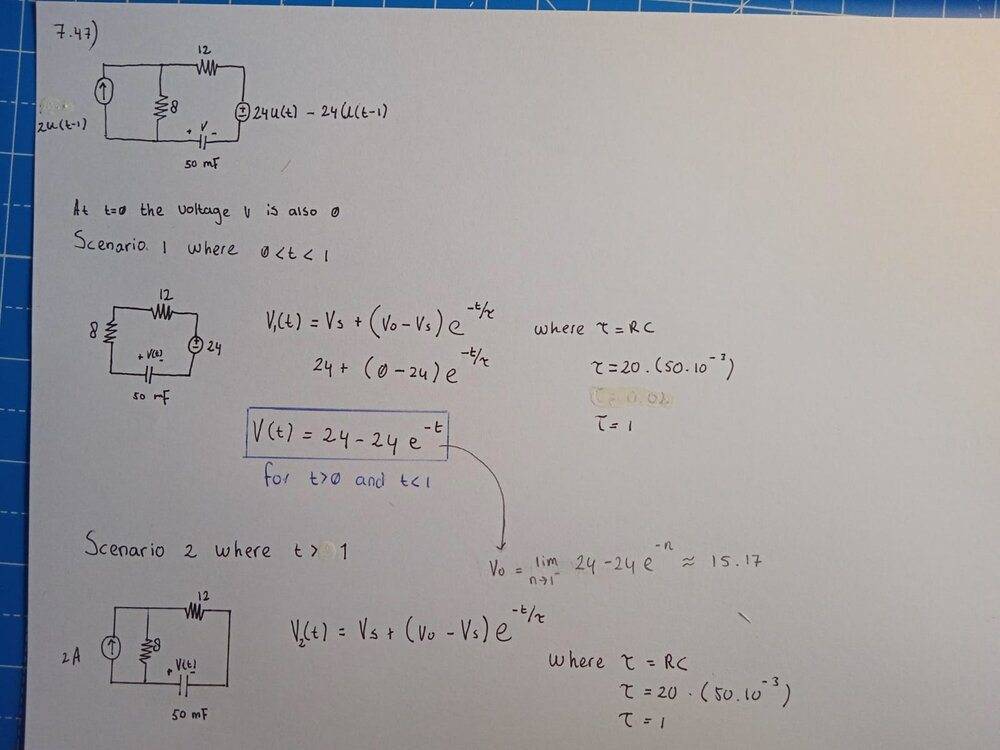 7.47)
12
8
24u(t) - 24u(t-1)
2u(t-1)
+ V -
50 mF
At t=0 the voltage V is also 0
Scenario 1 where 0<t<1
12
8
24
+ V(t) -
50 mF
V₁(t) = Vs + (Vo - Vs) e^(-t/τ)
where τ = RC
24 + (0 - 24) e^(-t/τ)
τ = 20 · (50·10⁻³)
τ = 0.02
τ = 1
V(t) = 24 - 24 e^(-t)
for t>0 and t<1
Scenario 2 where t > 1
Vo = lim 24 - 24 e^(-n) ≈ 15.17
n→1⁻
12
8
2A
+ V(t) -
50 mF
V₂(t) = Vs + (Vo - Vs) e^(-t/τ)
where τ = RC
τ = 20 · (50·10⁻³)
τ = 1